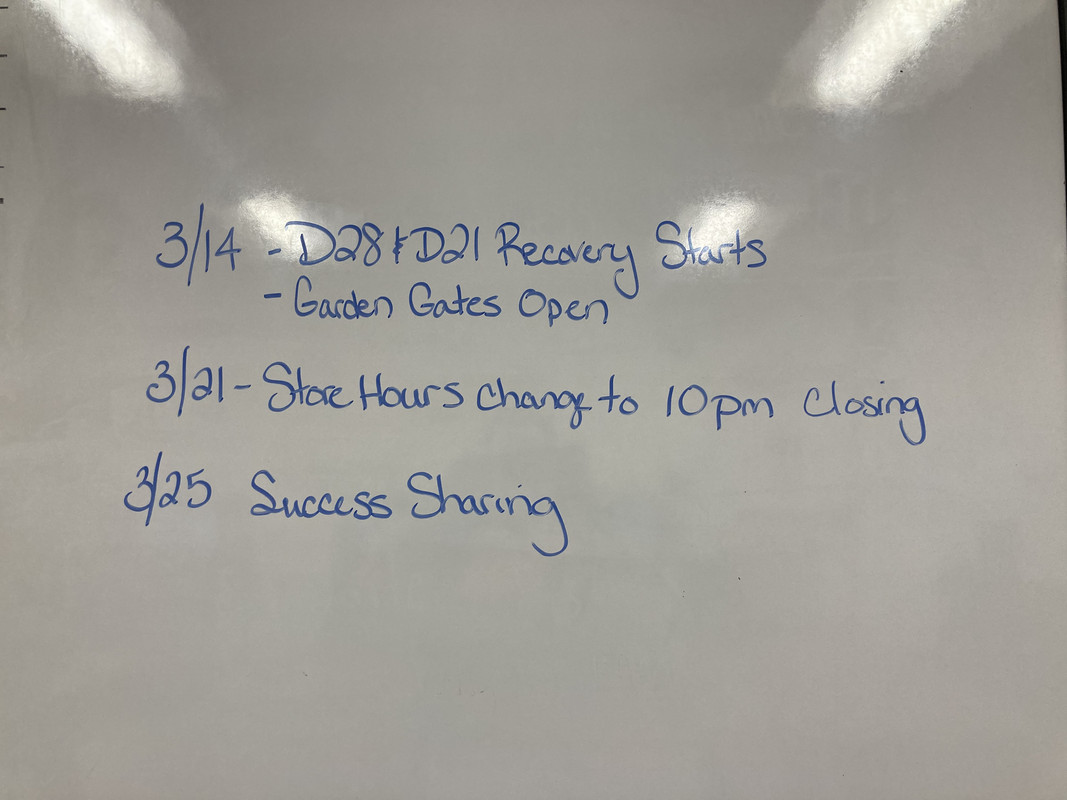 3/14 - D28 & D21 Recovery Starts
- Garden Gates Open
3/21 - Store Hours change to 10pm Closing
3/25 Success Sharing